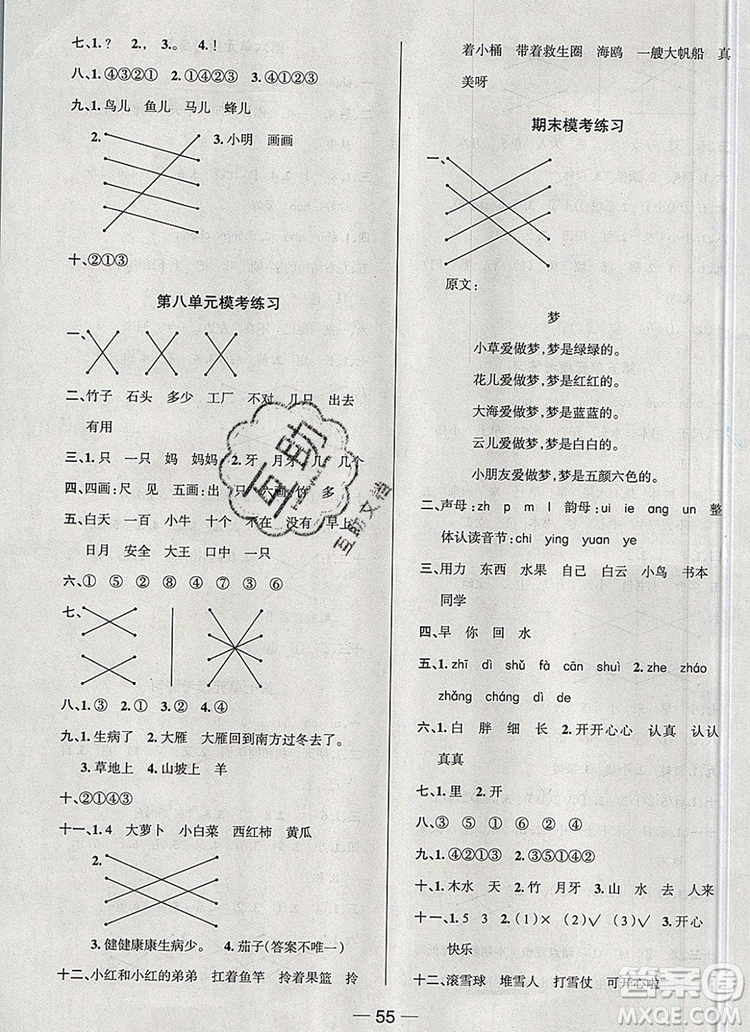 七、1.？ 2.， 3.。 4.！
八、1.④③①② 2.①④②③ 3.④③①②
九、1.鸟儿 鱼儿 马儿 蜂儿
2.
3.小明 画画
十、②①③
第八单元模考练习
一、
二、竹子 石头 多少 工厂 不对 几只 出去
有用
三、1.只 一只 妈 妈妈 2.牙 月牙 几 几个
四、四画：尺 见 五画：出 只 六画：竹 多
五、白天 一百 小牛 十个 不在 没有 早上
日月 安全 大王 口中 一只
六、① ① ② ② ⑤
七、
八、1.③ ② ① 2.③ ① ② ④
九、1.生病了 2.大雁 大雁回到南方过冬去了。
3.草地上 4.山坡上 羊
十、②①④③
十一、1.4 大萝卜 小白菜 西红柿 黄瓜
2.
3.健健康康生病少。 4.茄子(答案不唯一)
十二、小红和小红的弟弟 扛着鱼竿 拎着果篮 拎
着小桶 带着救生圈 海鸥 一艘大帆船 真
美呀
期末模考练习
一、
原文：
梦
小草爱做梦,梦是绿绿的。
花儿爱做梦,梦是红红的。
大海爱做梦,梦是蓝蓝的。
云儿爱做梦,梦是白白的。
小朋友爱做梦,梦是五颜六色的。
二、声母：zh p m l 韵母：ui ie ang un 整
体认读音节：chi ying yuan ye
三、用力 东西 水果 自己 白云 小鸟 书本
同学
四、早 你 回 水
五、1.zhī dì shǔ fà cān shū 2.zhe zháo
zhǎng cháng dì de
六、1.白 胖 细 长 2.开开心心 认真 认认
真真
七、1.里 2.开
八、③ ⑤ ① ⑥ ② ④
九、1.④①②③ 2.③⑤①④②
十、1.木水 天 2.竹 月牙 3.山 水 去 人来
十一、1.5 3 2.(1)× (2)√ (3)√ 3.开心
快乐
十二、滚雪球 堆雪人 打雪仗 可开心啦
55
互助
互助文档
答案圈
MXQE.COM